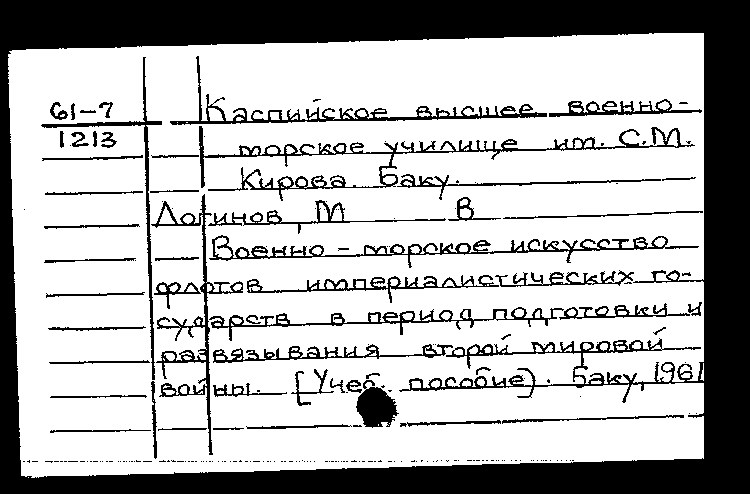 61-7 Каспийское высшее военно-
1213 морское училище им. С.М.
Кирова. Баку.
Логинов, М В
Военно-морское искусство
флотов империалистических го-
сударств в период подготовки и
развязывания второй мировой
войны. [Учеб. пособие]. Баку, 1961